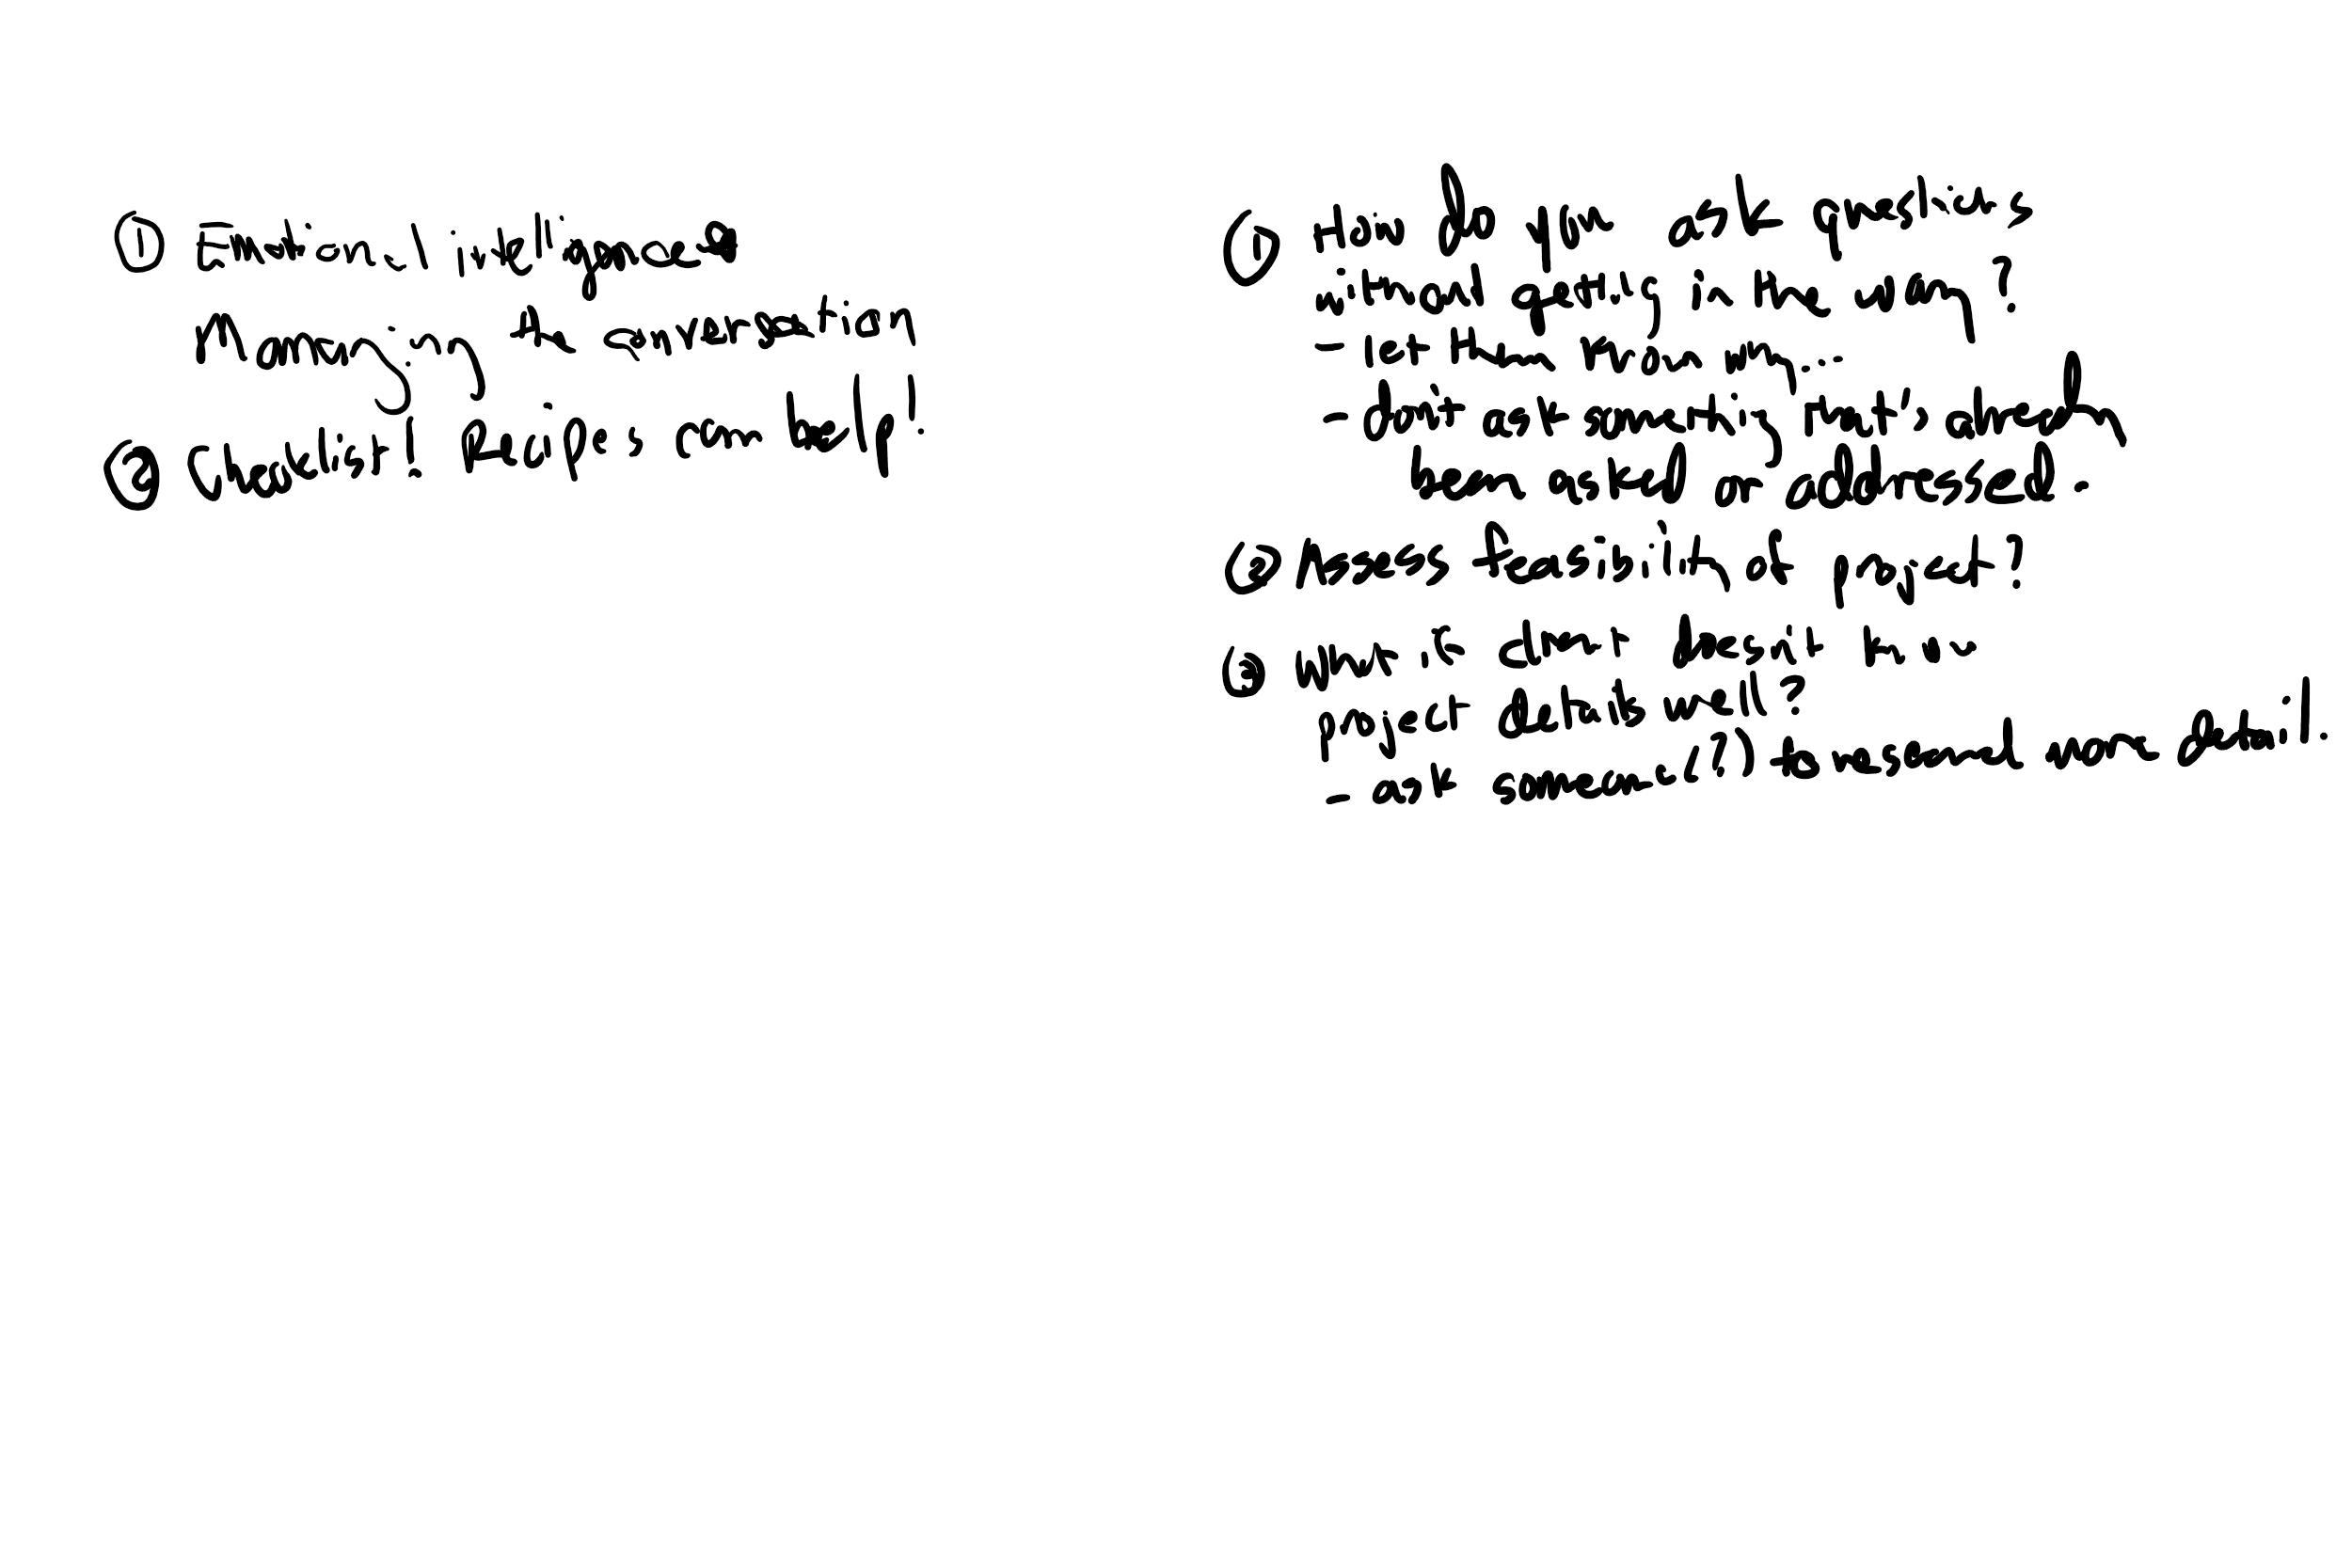 ① Emotional intelligence &
Managing the conversation
② Checklist! Recipies can help!
① How do you ask questions
without getting in the way?
- let them know my...
- don't ask something that is already
been asked or addressed.
② Assess feasibility of project?
③ What if client doesn't know
project details well?
- ask someone (?) to resend more detail.